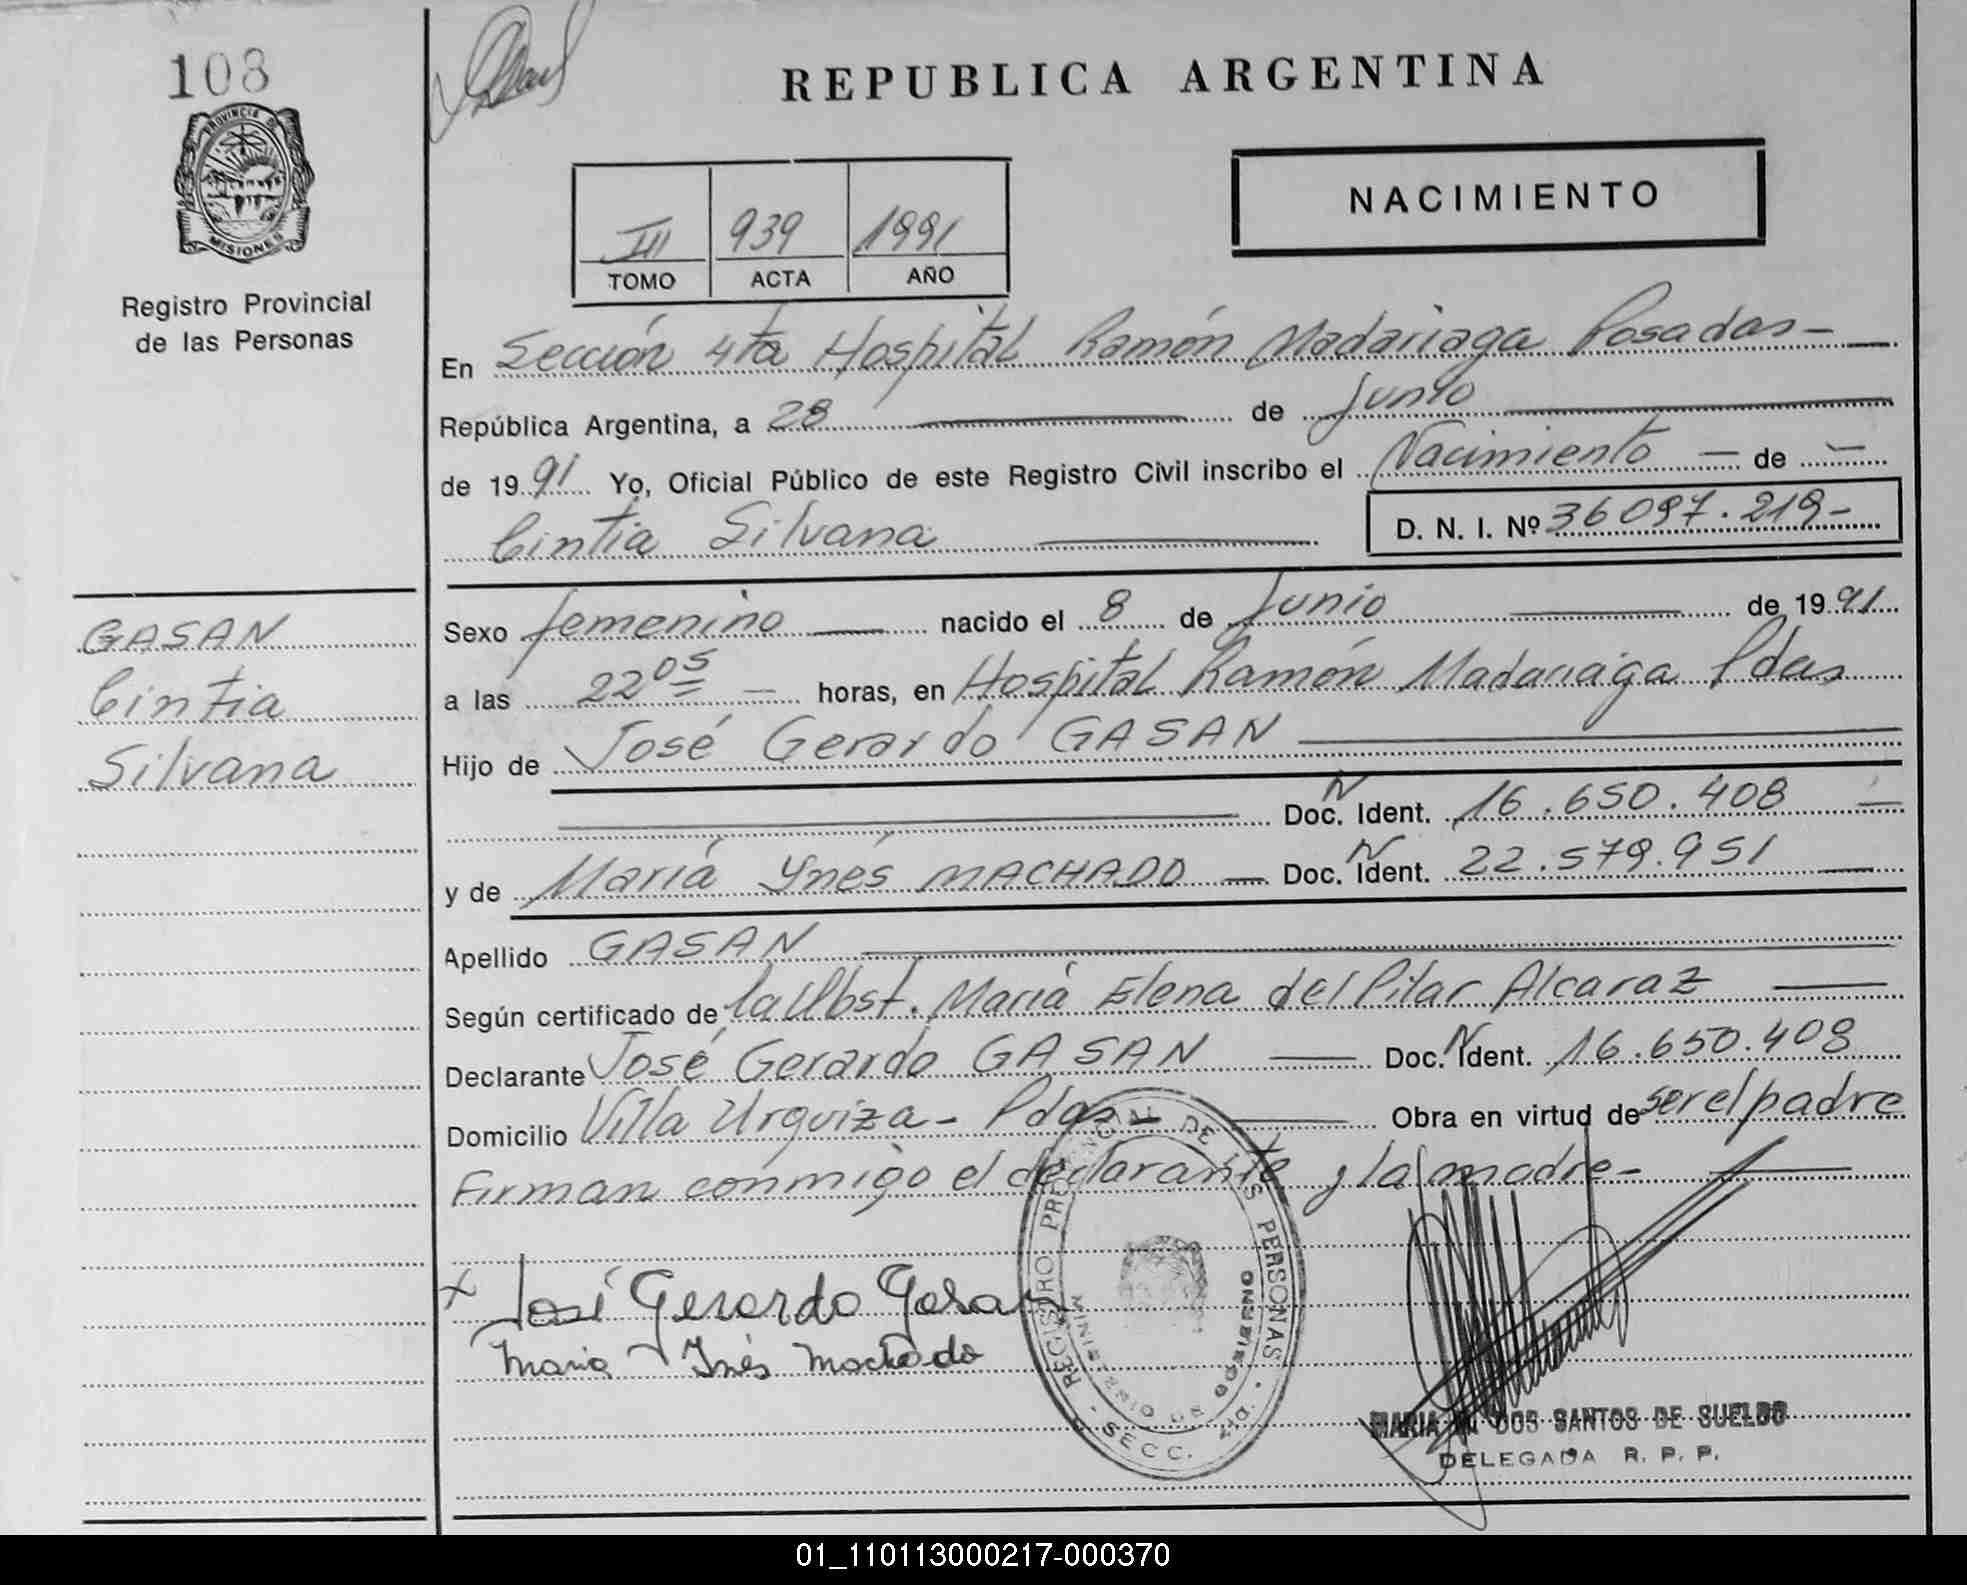 108
PROVINCIA DE
MISIONES
Registro Provincial
de las Personas
GASAN
Cintia
Silvana
REPUBLICA ARGENTINA
NACIMIENTO
III 939 1991
TOMO ACTA AÑO
En Sección 4ta Hospital Ramón Madariaga Posadas -
República Argentina, a 28 de Junio
de 1991 Yo, Oficial Público de este Registro Civil inscribo el Nacimiento - de -
Cintia Silvana D. N. I. Nº 36097.219-
Sexo femenino nacido el 8 de Junio de 1991
a las 22 05 horas, en Hospital Ramón Madariaga Pdas
Hijo de José Gerardo GASAN
Doc. N Ident. 16.650.408
y de María Ynés MACHADO Doc. N Ident. 22.579.951
Apellido GASAN
Según certificado de la Obst. María Elena del Pilar Alcaraz
Declarante José Gerardo GASAN Doc. N Ident. 16.650.408
Domicilio Villa Urquiza - Pdas - Obra en virtud de ser el padre
Firman conmigo el declarante y la madre -
x José Gerardo Gasan
Maria Inés Machado
REGISTRO PROVINCIAL DE LAS PERSONAS
MINISTERIO DE GOBIERNO
SECC. 4ta.
MARIA DOS SANTOS DE SUELDO
DELEGADA R. P. P.
01_110113000217-000370